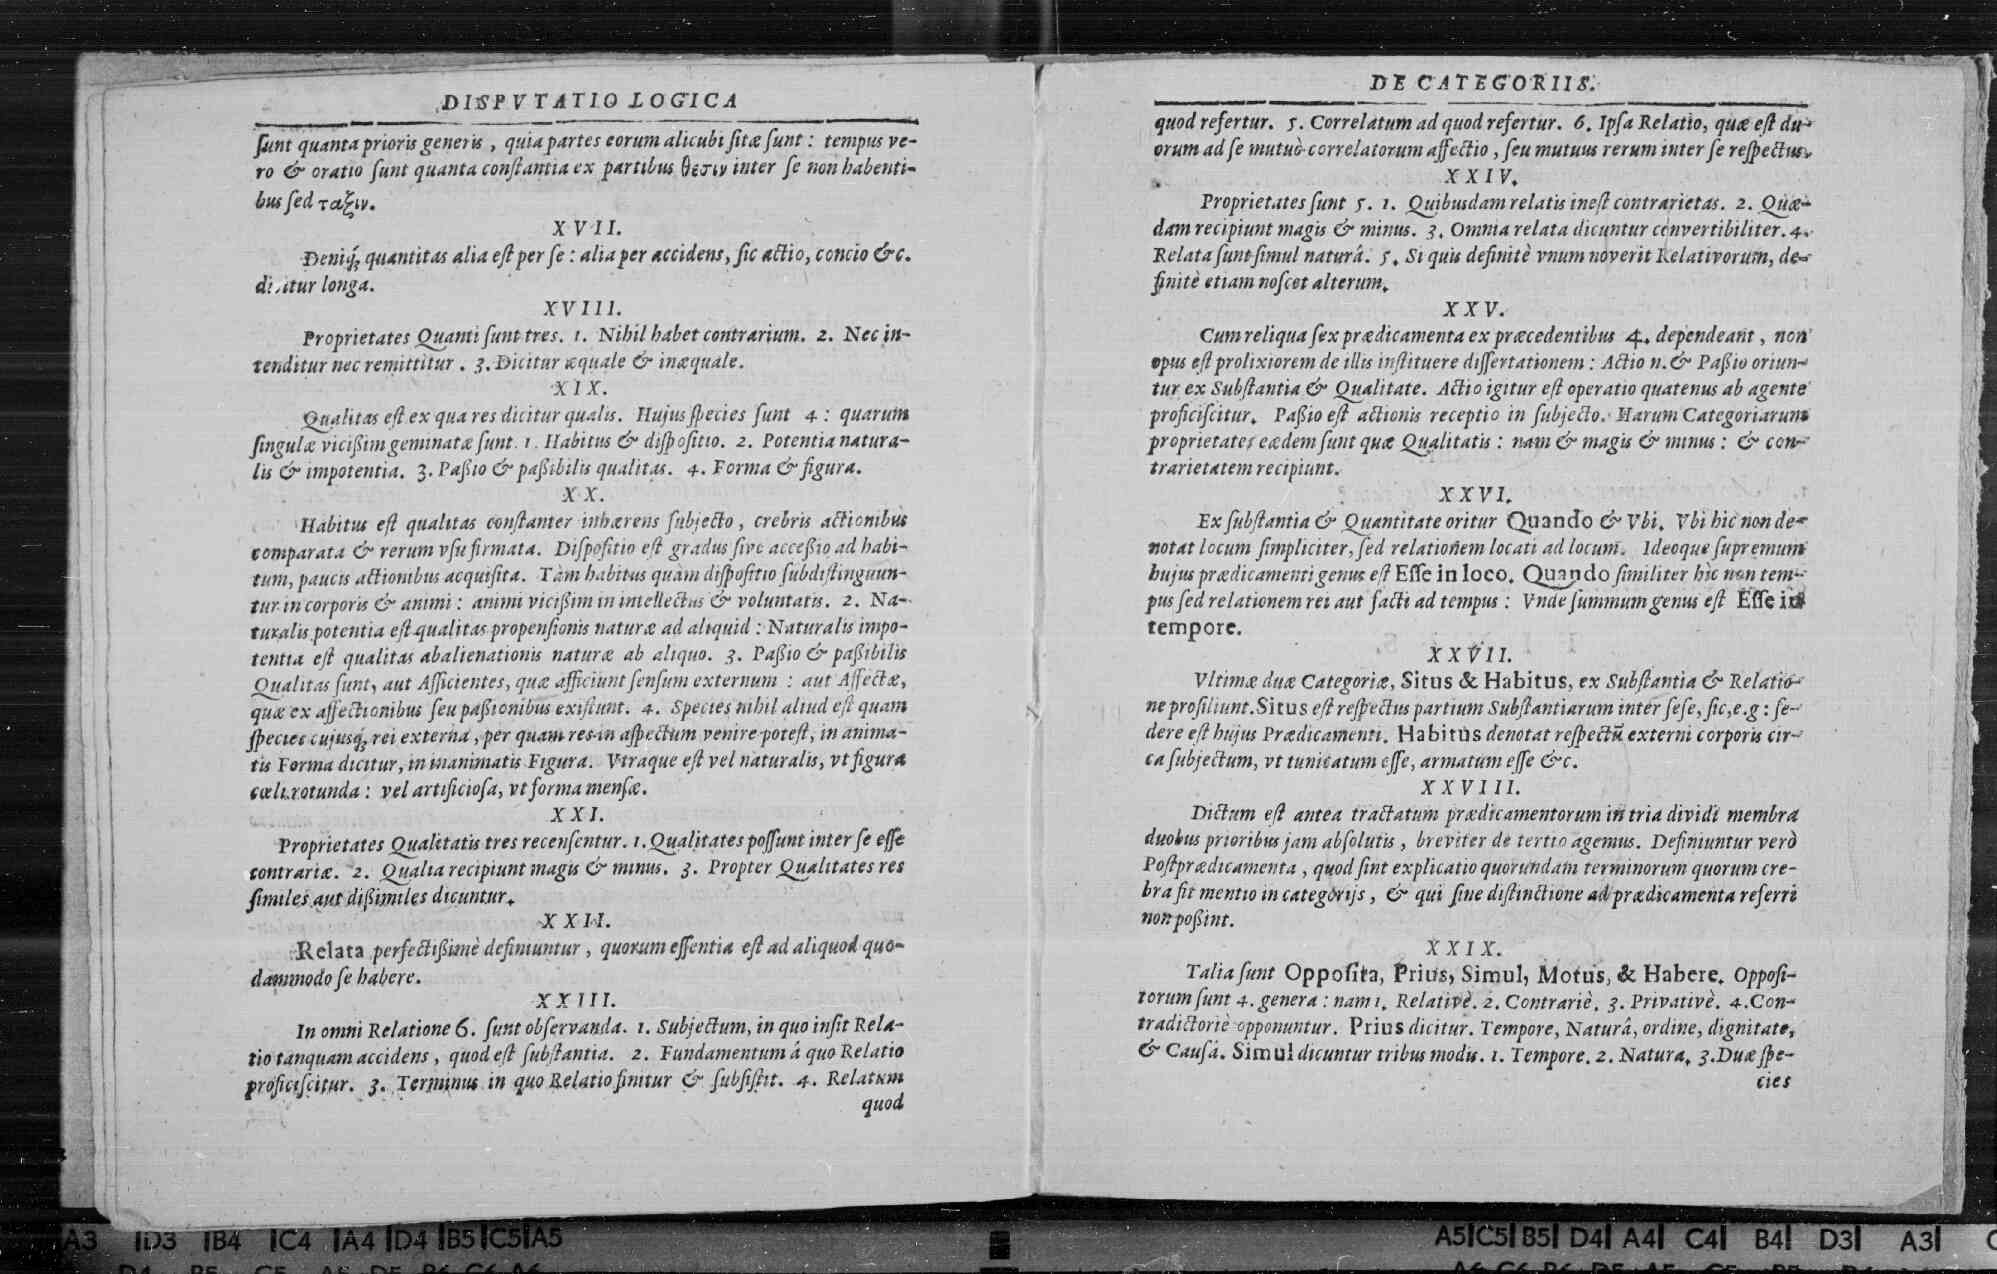 DISPVTATIO LOGICA
ſunt quanta prioris generis, quia partes eorum alicubi ſitæ ſunt: tempus ve-
ro & oratio ſunt quanta conſtantia ex partibus θεσιν inter ſe non habenti-
bus ſed ταξιν.
XVII.
Deniq́; quantitas alia eſt per ſe: alia per accidens, ſic actio, concio &c.
dicitur longa.
XVIII.
Proprietates Quanti ſunt tres. 1. Nihil habet contrarium. 2. Nec in-
tenditur nec remittitur. 3. Dicitur æquale & inæquale.
XIX.
Qualitas eſt ex qua res dicitur qualis. Hujus ſpecies ſunt 4: quarum
ſingulæ vicißim geminatæ ſunt. 1. Habitus & diſpoſitio. 2. Potentia natura-
lis & impotentia. 3. Paßio & paßibilis qualitas. 4. Forma & figura.
XX.
Habitus eſt qualitas conſtanter inhærens ſubjecto, crebris actionibus
comparata & rerum vſu firmata. Diſpoſitio eſt gradus ſive acceßio ad habi-
tum, paucis actionibus acquiſita. Tàm habitus quàm diſpoſitio ſubdiſtinguun-
tur in corporis & animi: animi vicißim in intellectus & voluntatis. 2. Na-
turalis potentia eſt qualitas propenſionis naturæ ad aliquid: Naturalis impo-
tentia eſt qualitas abalienationis naturæ ab aliquo. 3. Paßio & paßibilis
Qualitas ſunt, aut Afficientes, quæ afficiunt ſenſum externum: aut Affectæ,
quæ ex affectionibus ſeu paßionibus exiſtunt. 4. Species nihil aliud eſt quam
ſpecies cujusq́; rei externa, per quam res in aſpectum venire poteſt, in anima-
tis Forma dicitur, in inanimatis Figura. Vtraque eſt vel naturalis, vt figura
cœli rotunda: vel artificioſa, vt forma menſæ.
XXI.
Proprietates Qualitatis tres recenſentur. 1. Qualitates poſſunt inter ſe eſſe
contrariæ. 2. Qualia recipiunt magis & minus. 3. Propter Qualitates res
ſimiles aut dißimiles dicuntur.
XXII.
Relata perfectißimè definiuntur, quorum eſſentia eſt ad aliquod quo-
dammodo ſe habere.
XXIII.
In omni Relatione 6. ſunt obſervanda. 1. Subjectum, in quo inſit Rela-
tio tanquam accidens, quod eſt ſubſtantia. 2. Fundamentum á quo Relatio
proficiſcitur. 3. Terminus in quo Relatio finitur & ſubſiſtit. 4. Relatum
quod
DE CATEGORIIS.
quod refertur. 5. Correlatum ad quod refertur. 6. Ipſa Relatio, quæ eſt du-
orum ad ſe mutuò correlatorum affectio, ſeu mutuus rerum inter ſe reſpectus.
XXIV.
Proprietates ſunt 5. 1. Quibusdam relatis ineſt contrarietas. 2. Quæ-
dam recipiunt magis & minus. 3. Omnia relata dicuntur convertibiliter. 4.
Relata ſunt ſimul naturá. 5. Si quis definitè vnum noverit Relativorum, de-
finitè etiam noſcet alterum.
XXV.
Cum reliqua ſex prædicamenta ex præcedentibus 4. dependeant, non
opus eſt prolixiorem de illis inſtituere diſſertationem: Actio n. & Paßio oriun-
tur ex Subſtantia & Qualitate. Actio igitur eſt operatio quatenus ab agente
proficiſcitur. Paßio eſt actionis receptio in ſubjecto. Harum Categoriarum
proprietates eædem ſunt quæ Qualitatis: nam & magis & minus: & con-
trarietatem recipiunt.
XXVI.
Ex ſubſtantia & Quantitate oritur Quando & Vbi. Vbi hic non de-
notat locum ſimpliciter, ſed relationem locati ad locum. Ideoque ſupremum
hujus prædicamenti genus eſt Eſſe in loco. Quando ſimiliter hìc non tem-
pus ſed relationem rei aut facti ad tempus: Vnde ſummum genus eſt Eſſe in
tempore.
XXVII.
Vltimæ duæ Categoriæ, Situs & Habitus, ex Subſtantia & Relatio-
ne proſiliunt. Situs eſt reſpectus partium Subſtantiarum inter ſeſe, ſic, e.g: ſe-
dere eſt hujus Prædicamenti. Habitus denotat reſpectũ externi corporis cir-
ca ſubjectum, vt tunicatum eſſe, armatum eſſe &c.
XXVIII.
Dictum eſt antea tractatum prædicamentorum in tria dividi membra
duobus prioribus jam abſolutis, breviter de tertio agemus. Definiuntur verò
Poſtprædicamenta, quod ſint explicatio quorundam terminorum quorum cre-
bra fit mentio in categorijs, & qui ſine diſtinctione ad prædicamenta referri
non poßint.
XXIX.
Talia ſunt Oppoſita, Prius, Simul, Motus, & Habere. Oppoſi-
torum ſunt 4. genera: nam 1. Relativè. 2. Contrariè. 3. Privativè. 4. Con-
tradictoriè opponuntur. Prius dicitur. Tempore, Naturá, ordine, dignitate,
& Cauſá. Simul dicuntur tribus modis. 1. Tempore. 2. Natura. 3. Duæ ſpe-
cies
A3 D3 B4 C4 A4 D4 B5 C5 A5
A5 C5 B5 D4 A4 C4 B4 D3 A3